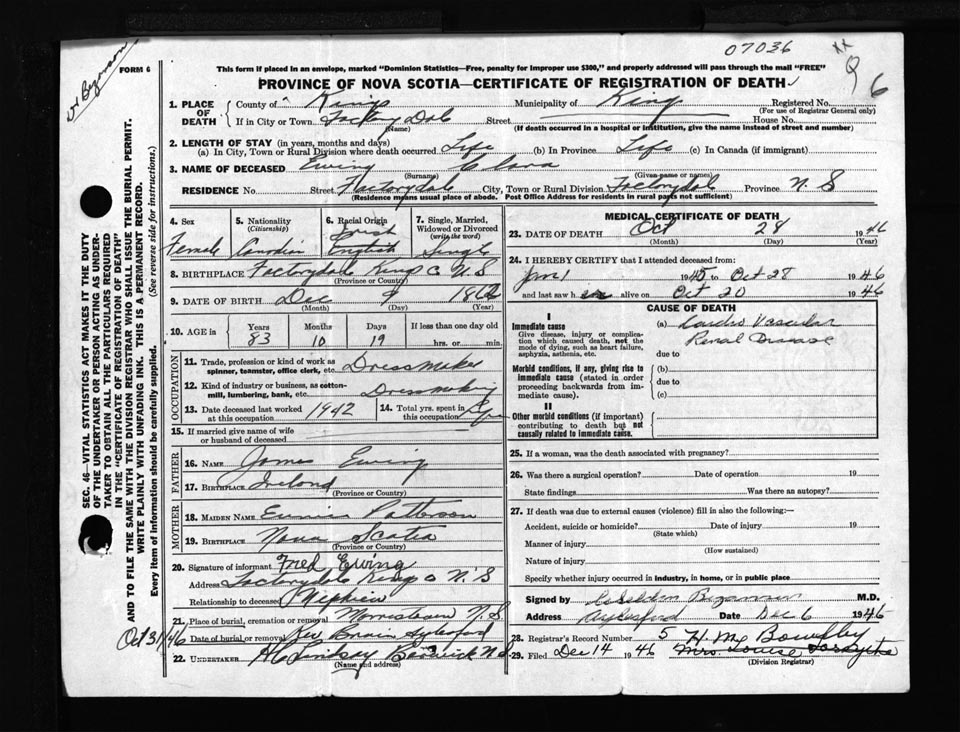 07036
xx
6
W Bezanson
FORM 6
This form if placed in an envelope, marked "Dominion Statistics—Free, penalty for improper use $300," and properly addressed will pass through the mail "FREE"
PROVINCE OF NOVA SCOTIA—CERTIFICATE OF REGISTRATION OF DEATH
1. PLACE OF DEATH County of Kings Municipality of King Registered No.
(For use of Registrar General only)
If in City or Town Factory Dale Street House No.
(Name) (If death occurred in a hospital or institution, give the name instead of street and number)
2. LENGTH OF STAY (in years, months and days)
(a) In City, Town or Rural Division where death occurred Life (b) In Province Life (c) In Canada (if immigrant)
3. NAME OF DECEASED Ewing Clara
(Surname) (Given name or names)
RESIDENCE No. Street Factorydale City, Town or Rural Division Factorydale Province N. S
(Residence means usual place of abode. Post Office Address for residents in rural parts not sufficient)
4. Sex Female
5. Nationality (Citizenship) Canadian
6. Racial Origin Irish English
7. Single, Married, Widowed or Divorced (write the word) Single
8. BIRTHPLACE Factorydale Kings Co N.S
(Province or Country)
9. DATE OF BIRTH Dec 9 1862
(Month) (Day) (Year)
10. AGE in Years 83 Months 10 Days 19 If less than one day old hrs. or min.
OCCUPATION
11. Trade, profession or kind of work as spinner, teamster, office clerk, etc. Dressmaker
12. Kind of industry or business, as cotton-mill, lumbering, bank, etc. Dressmaking
13. Date deceased last worked at this occupation 1942
14. Total yrs. spent in this occupation
15. If married give name of wife or husband of deceased
FATHER
16. NAME James Ewing
17. BIRTHPLACE Ireland
(Province or Country)
MOTHER
18. MAIDEN NAME Eunice Patterson
19. BIRTHPLACE Nova Scotia
(Province or Country)
20. Signature of informant Fred Ewing
Address Factorydale Kings Co N.S
Relationship to deceased Nephew
21. Place of burial, cremation or removal Morristown N.S
Date of burial or removal Rev Brain Aylesford
Oct 31/46
22. UNDERTAKER Lindsay Berwick N.S.
(Name and address)
MEDICAL CERTIFICATE OF DEATH
23. DATE OF DEATH Oct 28 1946
(Month) (Day) (Year)
24. I HEREBY CERTIFY that I attended deceased from:
Jan 1 1945 to Oct 28 1946
and last saw her alive on Oct 20 1946
CAUSE OF DEATH
I
Immediate cause
Give disease, injury or complication which caused death, not the mode of dying, such as heart failure, asphyxia, asthenia, etc.
(a) Cardio Vascular
Renal Disease
due to
Morbid conditions, if any, giving rise to immediate cause (stated in order proceeding backwards from immediate cause).
(b)
due to
(c)
II
Other morbid conditions (if important) contributing to death but not causally related to immediate cause.
25. If a woman, was the death associated with pregnancy?
26. Was there a surgical operation? Date of operation 19
State findings Was there an autopsy?
27. If death was due to external causes (violence) fill in also the following:—
Accident, suicide or homicide? Date of injury 19
(State which)
Manner of injury
(How sustained)
Nature of injury
Specify whether injury occurred in industry, in home, or in public place
Signed by Bezanson M.D.
Address Aylesford Date Dec 6 1946
28. Registrar's Record Number 5 H. M. Bowlby
29. Filed Dec 14 1946 Mrs. Louise Forsythe
(Division Registrar)
SEC. 46—VITAL STATISTICS ACT MAKES IT THE DUTY
OF THE UNDERTAKER OR PERSON ACTING AS UNDER-
TAKER TO OBTAIN ALL THE PARTICULARS REQUIRED
IN THE "CERTIFICATE OF REGISTRATION OF DEATH"
AND TO FILE THE SAME WITH THE DIVISION REGISTRAR WHO SHALL ISSUE THE BURIAL PERMIT.
WRITE PLAINLY WITH UNFADING INK. THIS IS A PERMANENT RECORD.
Every item of information should be carefully supplied. (See reverse side for instructions.)